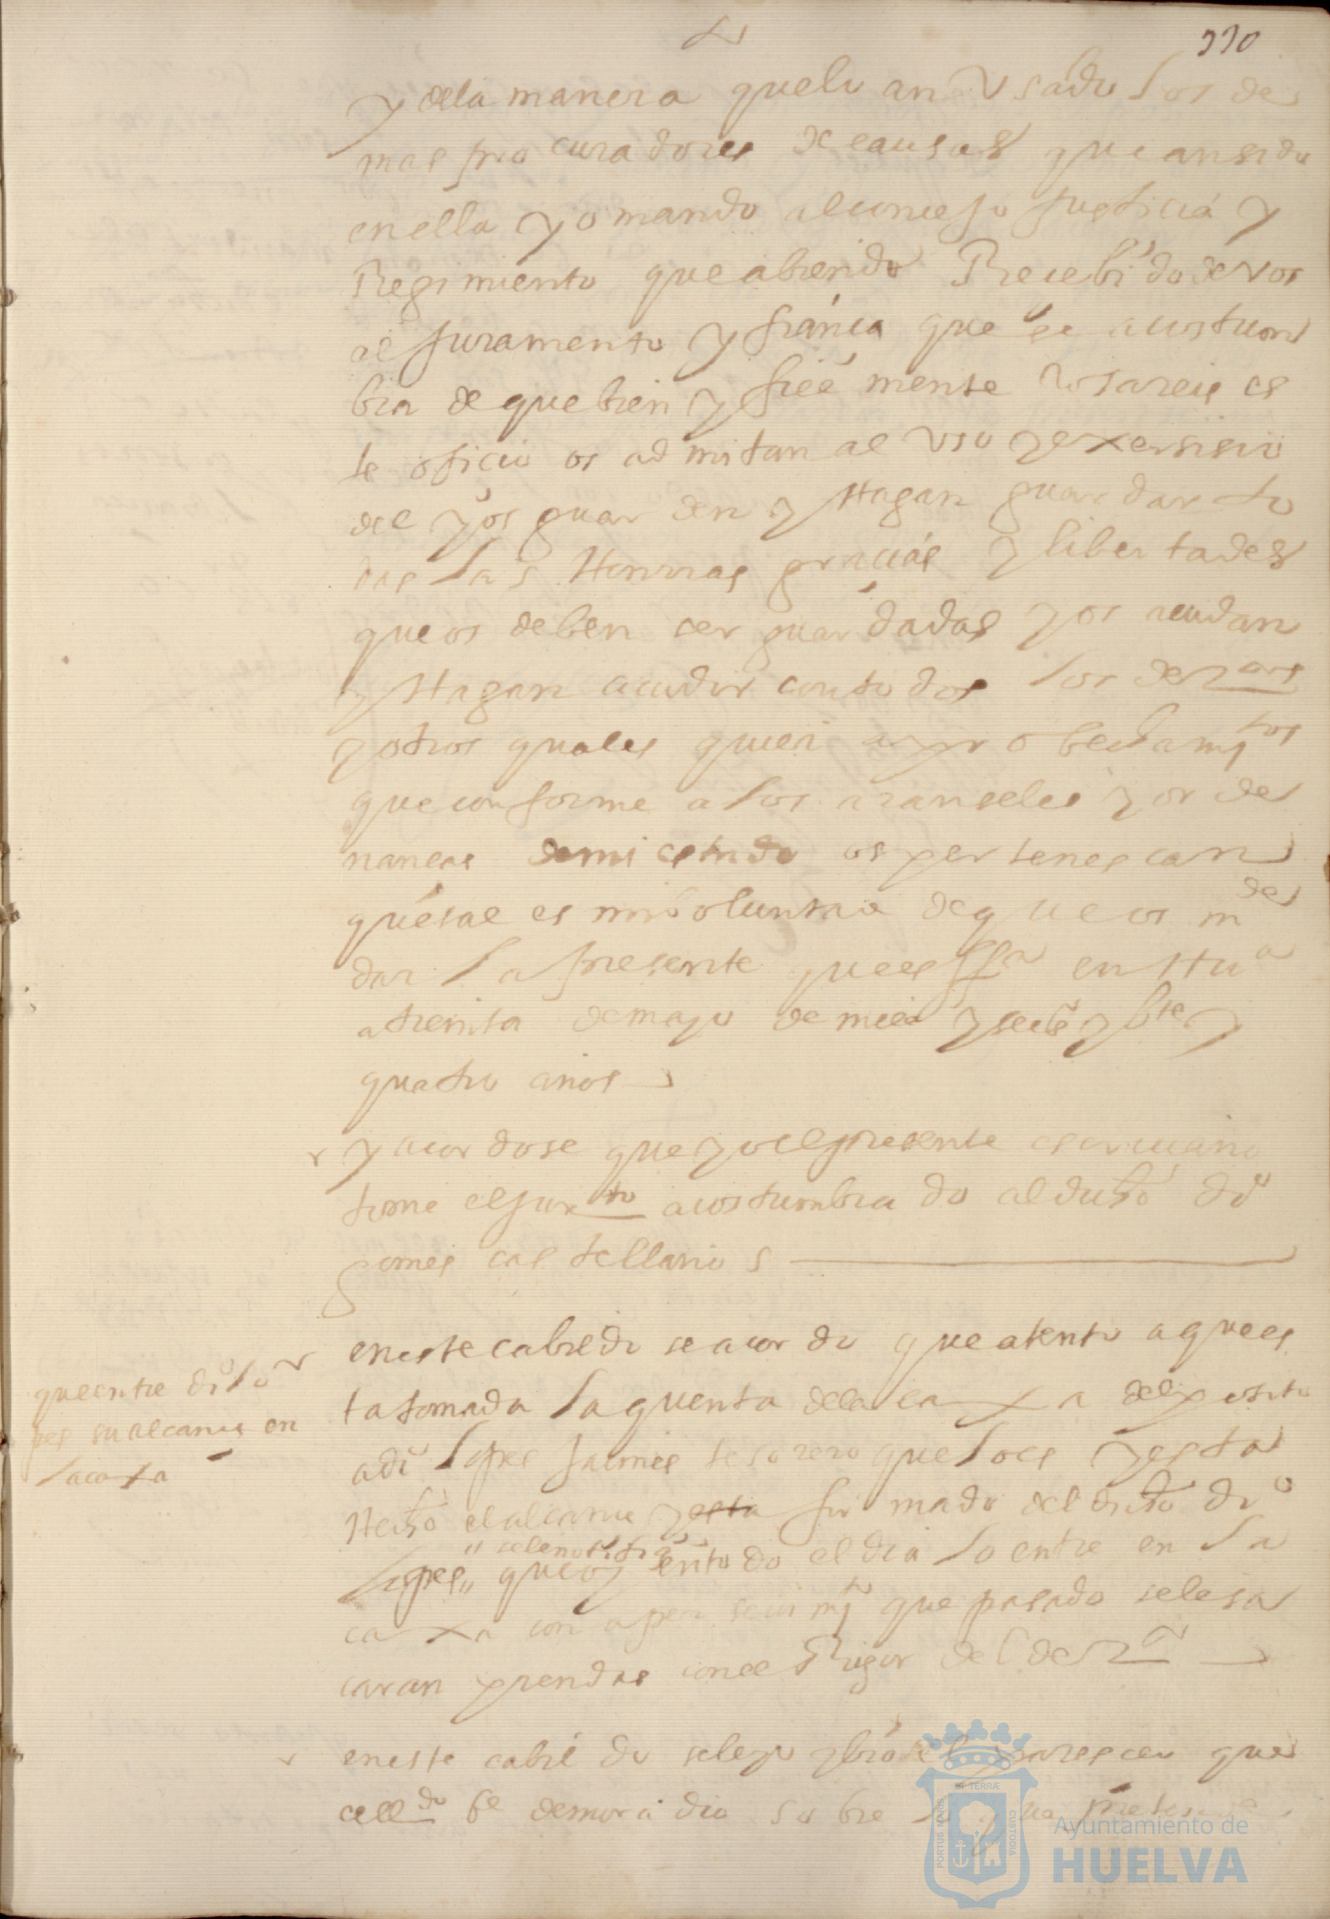 330
y de la manera que lo an Vsado los de
mas procuradores de causas que an sido
en ella yo mando al concejo Justicia y
Regimiento que abiendo Recebido de vos
el Juramento y fiança que se acostum
bra de que bien y fiel mente Vsareis es
te oficio os admitan al Vso y exersisio
del y os guarden y Hagan guardar to
das las Honrras gracias y libertades
que os deben ser guardadas y os acudan
y Hagan acudir con todos los derzos
y otros quales quier aprobechamitos
que conforme a los aranseles y orde
nancas de mi estado os pertenescan
que tal es mi boluntad de que os mde
dar la presente que es ffa en Hua
a treinta de mayo de mill y seisos y bte y
quatro años
y acordose que yo el presente escriuano
tome el jurto acostumbrado al dicho do
gomes castellanos
en este cabildo se acordo que atento a que es
que entre do lo
ta tomada la quenta de la caxa del posito
pes su alcance en
a do lopes Jaimes tesorero que loes y esta
la caxa
Hecho el alcance y esta firmado del dicho do
se le notifi
lopes que oy en todo el dia lo entre en la
caxa con apersebimio que pasado se le sa
caran prendas con el Rigor del derzo
en este cabildo se leyo y bio el pareser que
el lldo be demora dio sobre lo que
PORTUS MARIS ET TERRÆ CUSTODIA
Ayuntamiento de
HUELVA